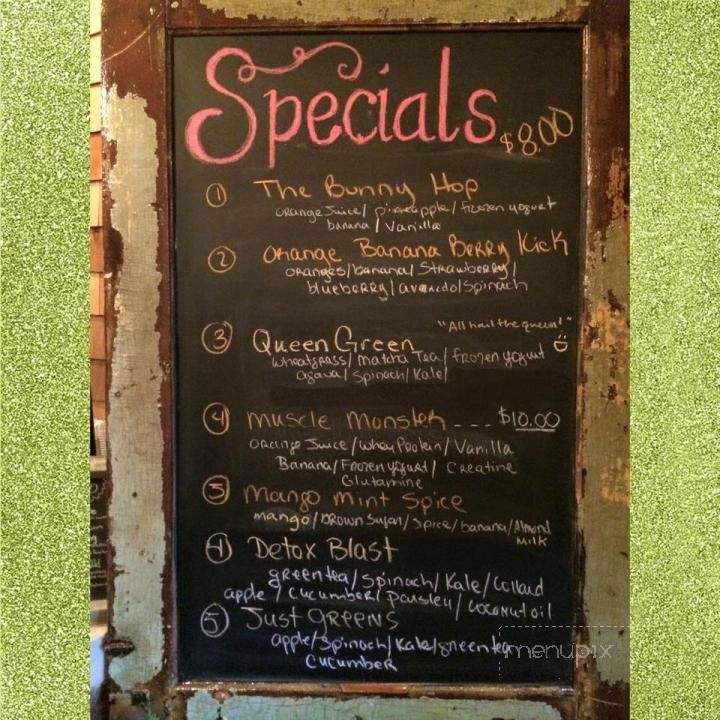 Specials
$8.00
① The Bunny Hop
orange Juice/ pineapple/ frozen yogurt
banana / Vanilla
② Orange Banana Berry Kick
oranges/banana/ Strawberry/
blueberry/avacado/Spinach
"All hail the queen!"
③ Queen Green
wheatgrass/ matcha Tea/ frozen yogurt
agava/ Spinach/Kale/
④ Muscle Monster --- $10.00
orange Juice /whey Protein/ Vanilla
Banana/ Frozen yogurt/ Creatine
Glutamine
③ Mango Mint Spice
mango/brown Sugar/ Spice/banana/Almond
Milk
④ Detox Blast
green tea/ Spinach/ Kale/Collard
apple / cucumber/ parsley/ coconut oil
⑤ Just Greens
apple/Spinach/Kale/green tea
cucumber
menupix